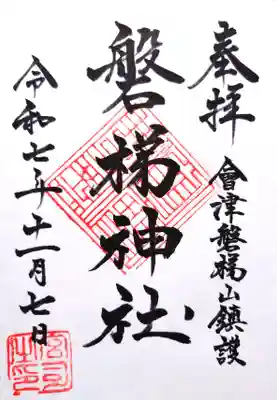 奉拝
會津磐梯山鎮護
磐梯神社
令和七年十一月七日